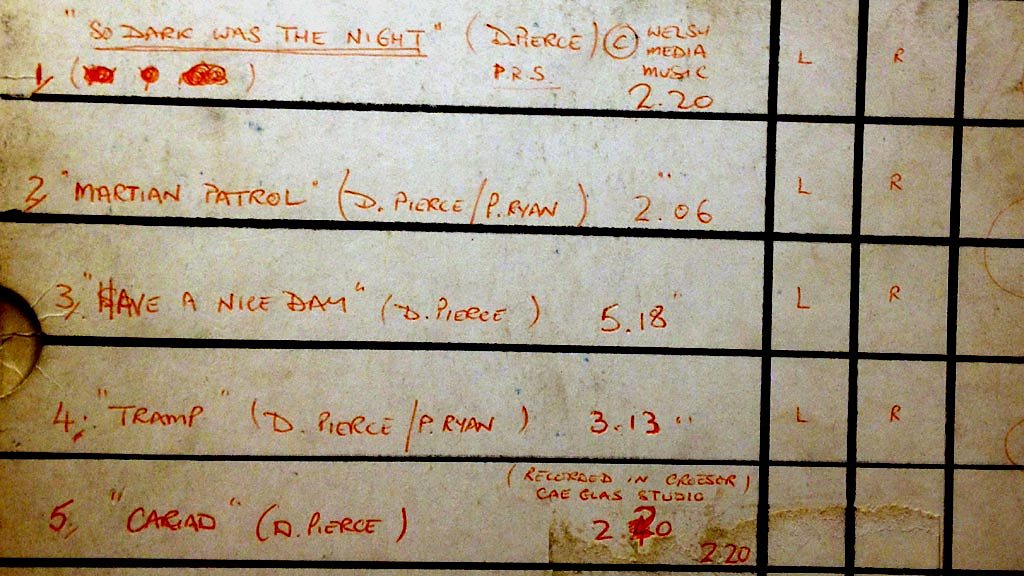 "SO DARK WAS THE NIGHT" (D.PIERCE) © WELSH
MEDIA
1, ( ) P.R.S. MUSIC
2.20
L R
2, "MARTIAN PATROL" (D. PIERCE/P.RYAN) 2.06" L R
3, "HAVE A NICE DAY" (D.PIERCE) 5.18" L R
4, "TRAMP" (D. PIERCE/P.RYAN) 3.13" L R
(RECORDED IN CROESOR)
CAE GLAS STUDIO
5, "CARIAD" (D.PIERCE) 2.20
2 20